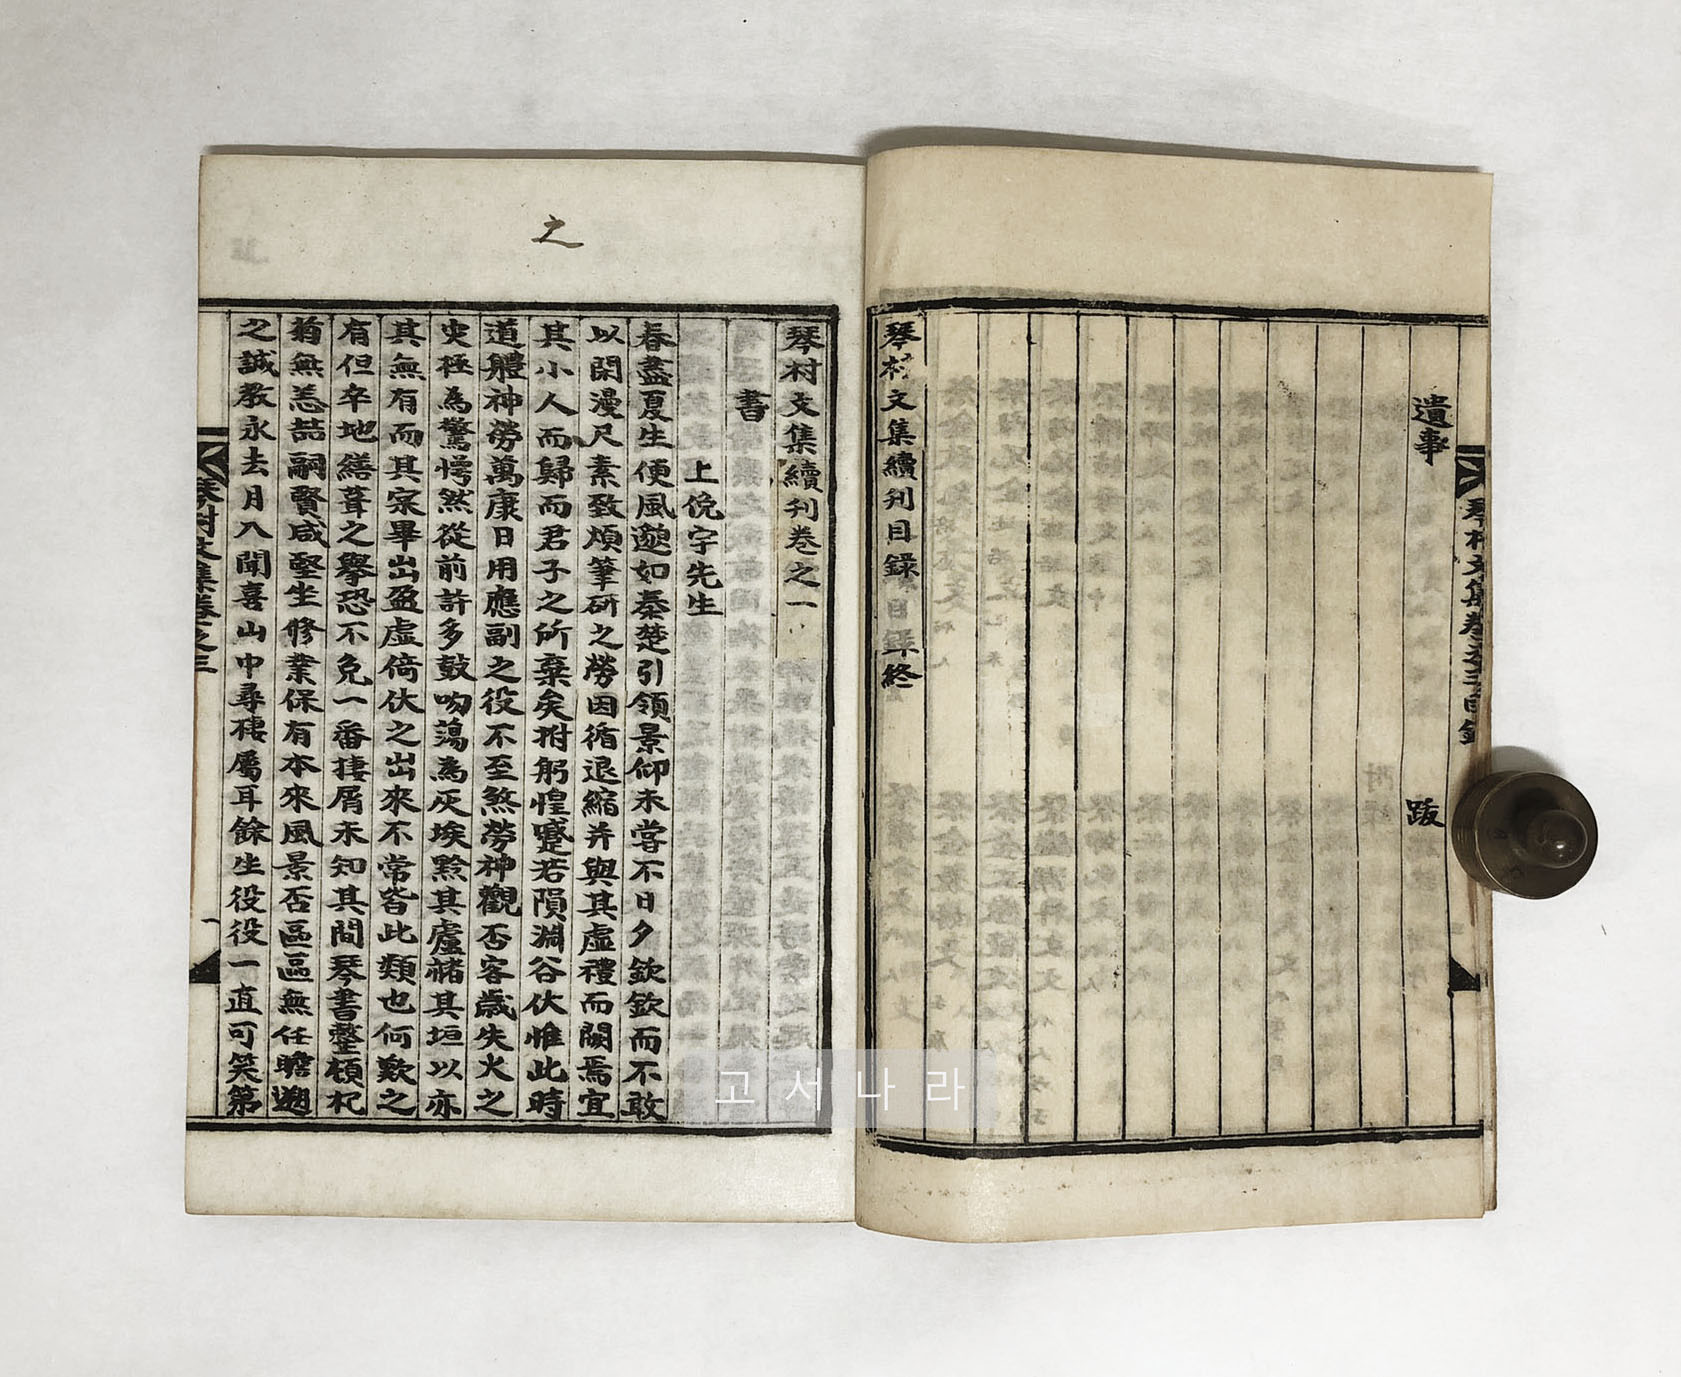 琴村文集卷之三目錄
遺事
跋
琴村文集續刊目錄終
之
琴村文集續刊卷之一
書
上俛宇先生
春盡夏生便風邈如秦楚引領景仰未嘗不日夕欽欽而不敢
以閑漫尺素致煩筆硏之勞因循退縮并與其虛禮而闕焉宜
其小人而歸而君子之所棄矣拊躬惶蹙若隕淵谷伏惟此時
道體神勞萬康日用應副之役不至煞勞神觀否客歲失火之
灾極為驚愕然從前許多鼓吻蕩為灰埃黔其廬儲其垣以亦
其無有而其宗畢出盈虛倚伏之出來不常皆此類也何歎之
有但卒地繕葺之擧恐不免一番捿屑未知其間琴書整頓杞
菊無恙喆嗣賢咸堅坐修業保有本來風景否區區無任瞻遡
之誠教永去月入聞喜山中尋棲屬耳餘生役役一直可笑第
琴村文集卷之三
一
고서나라